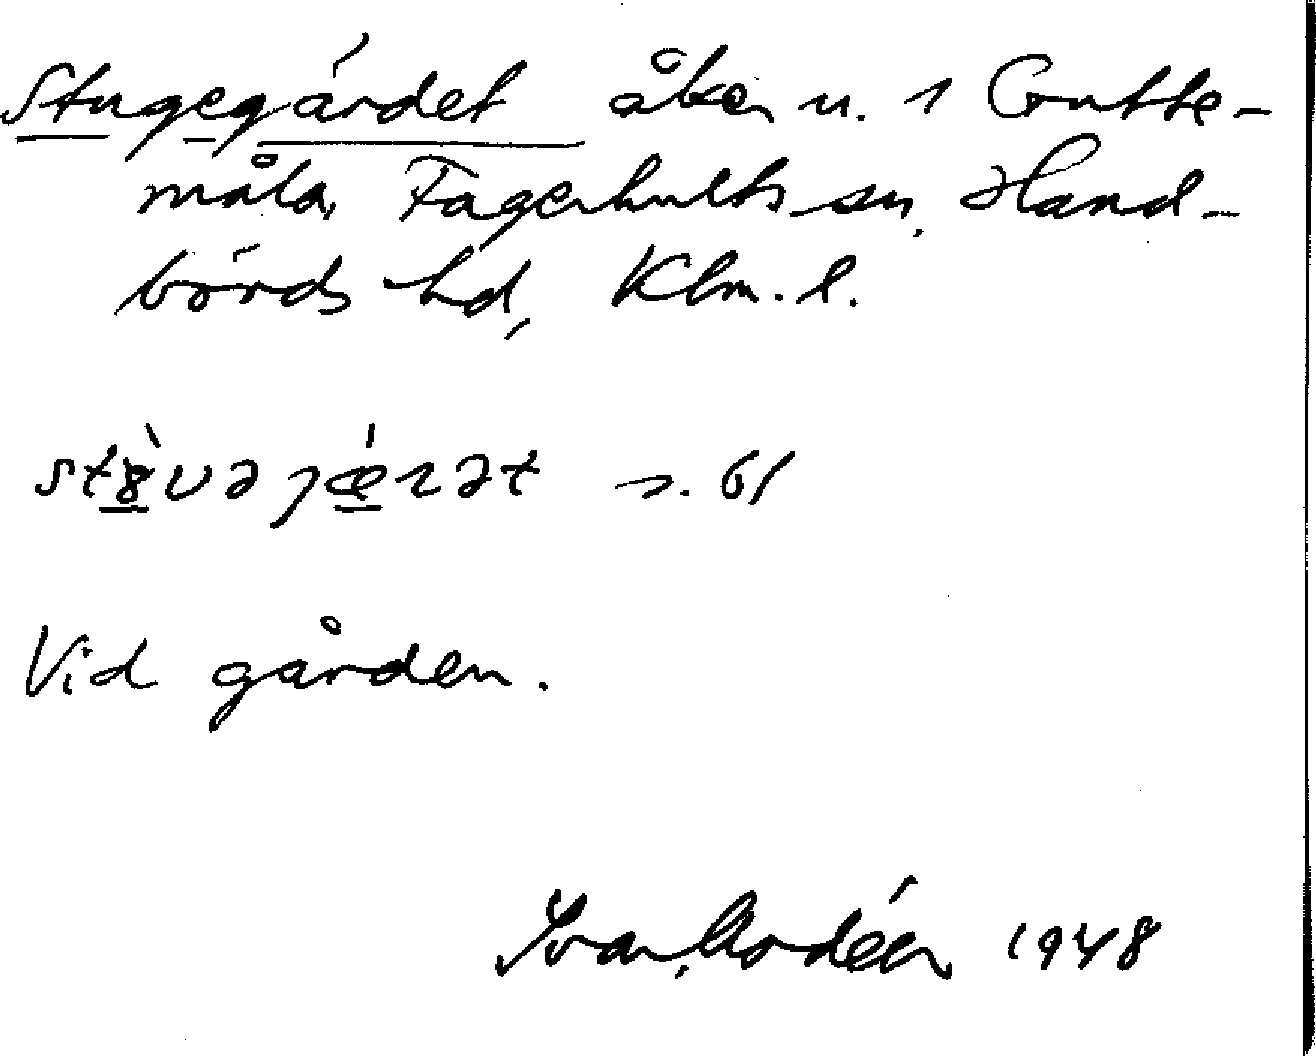 Stugegärdet åker u. 1 Gutte-
måla, Fagerhults sn, Hand-
börds hd, Klm. l.
s. 61
Vid gården.
Ivar Modéer 1948